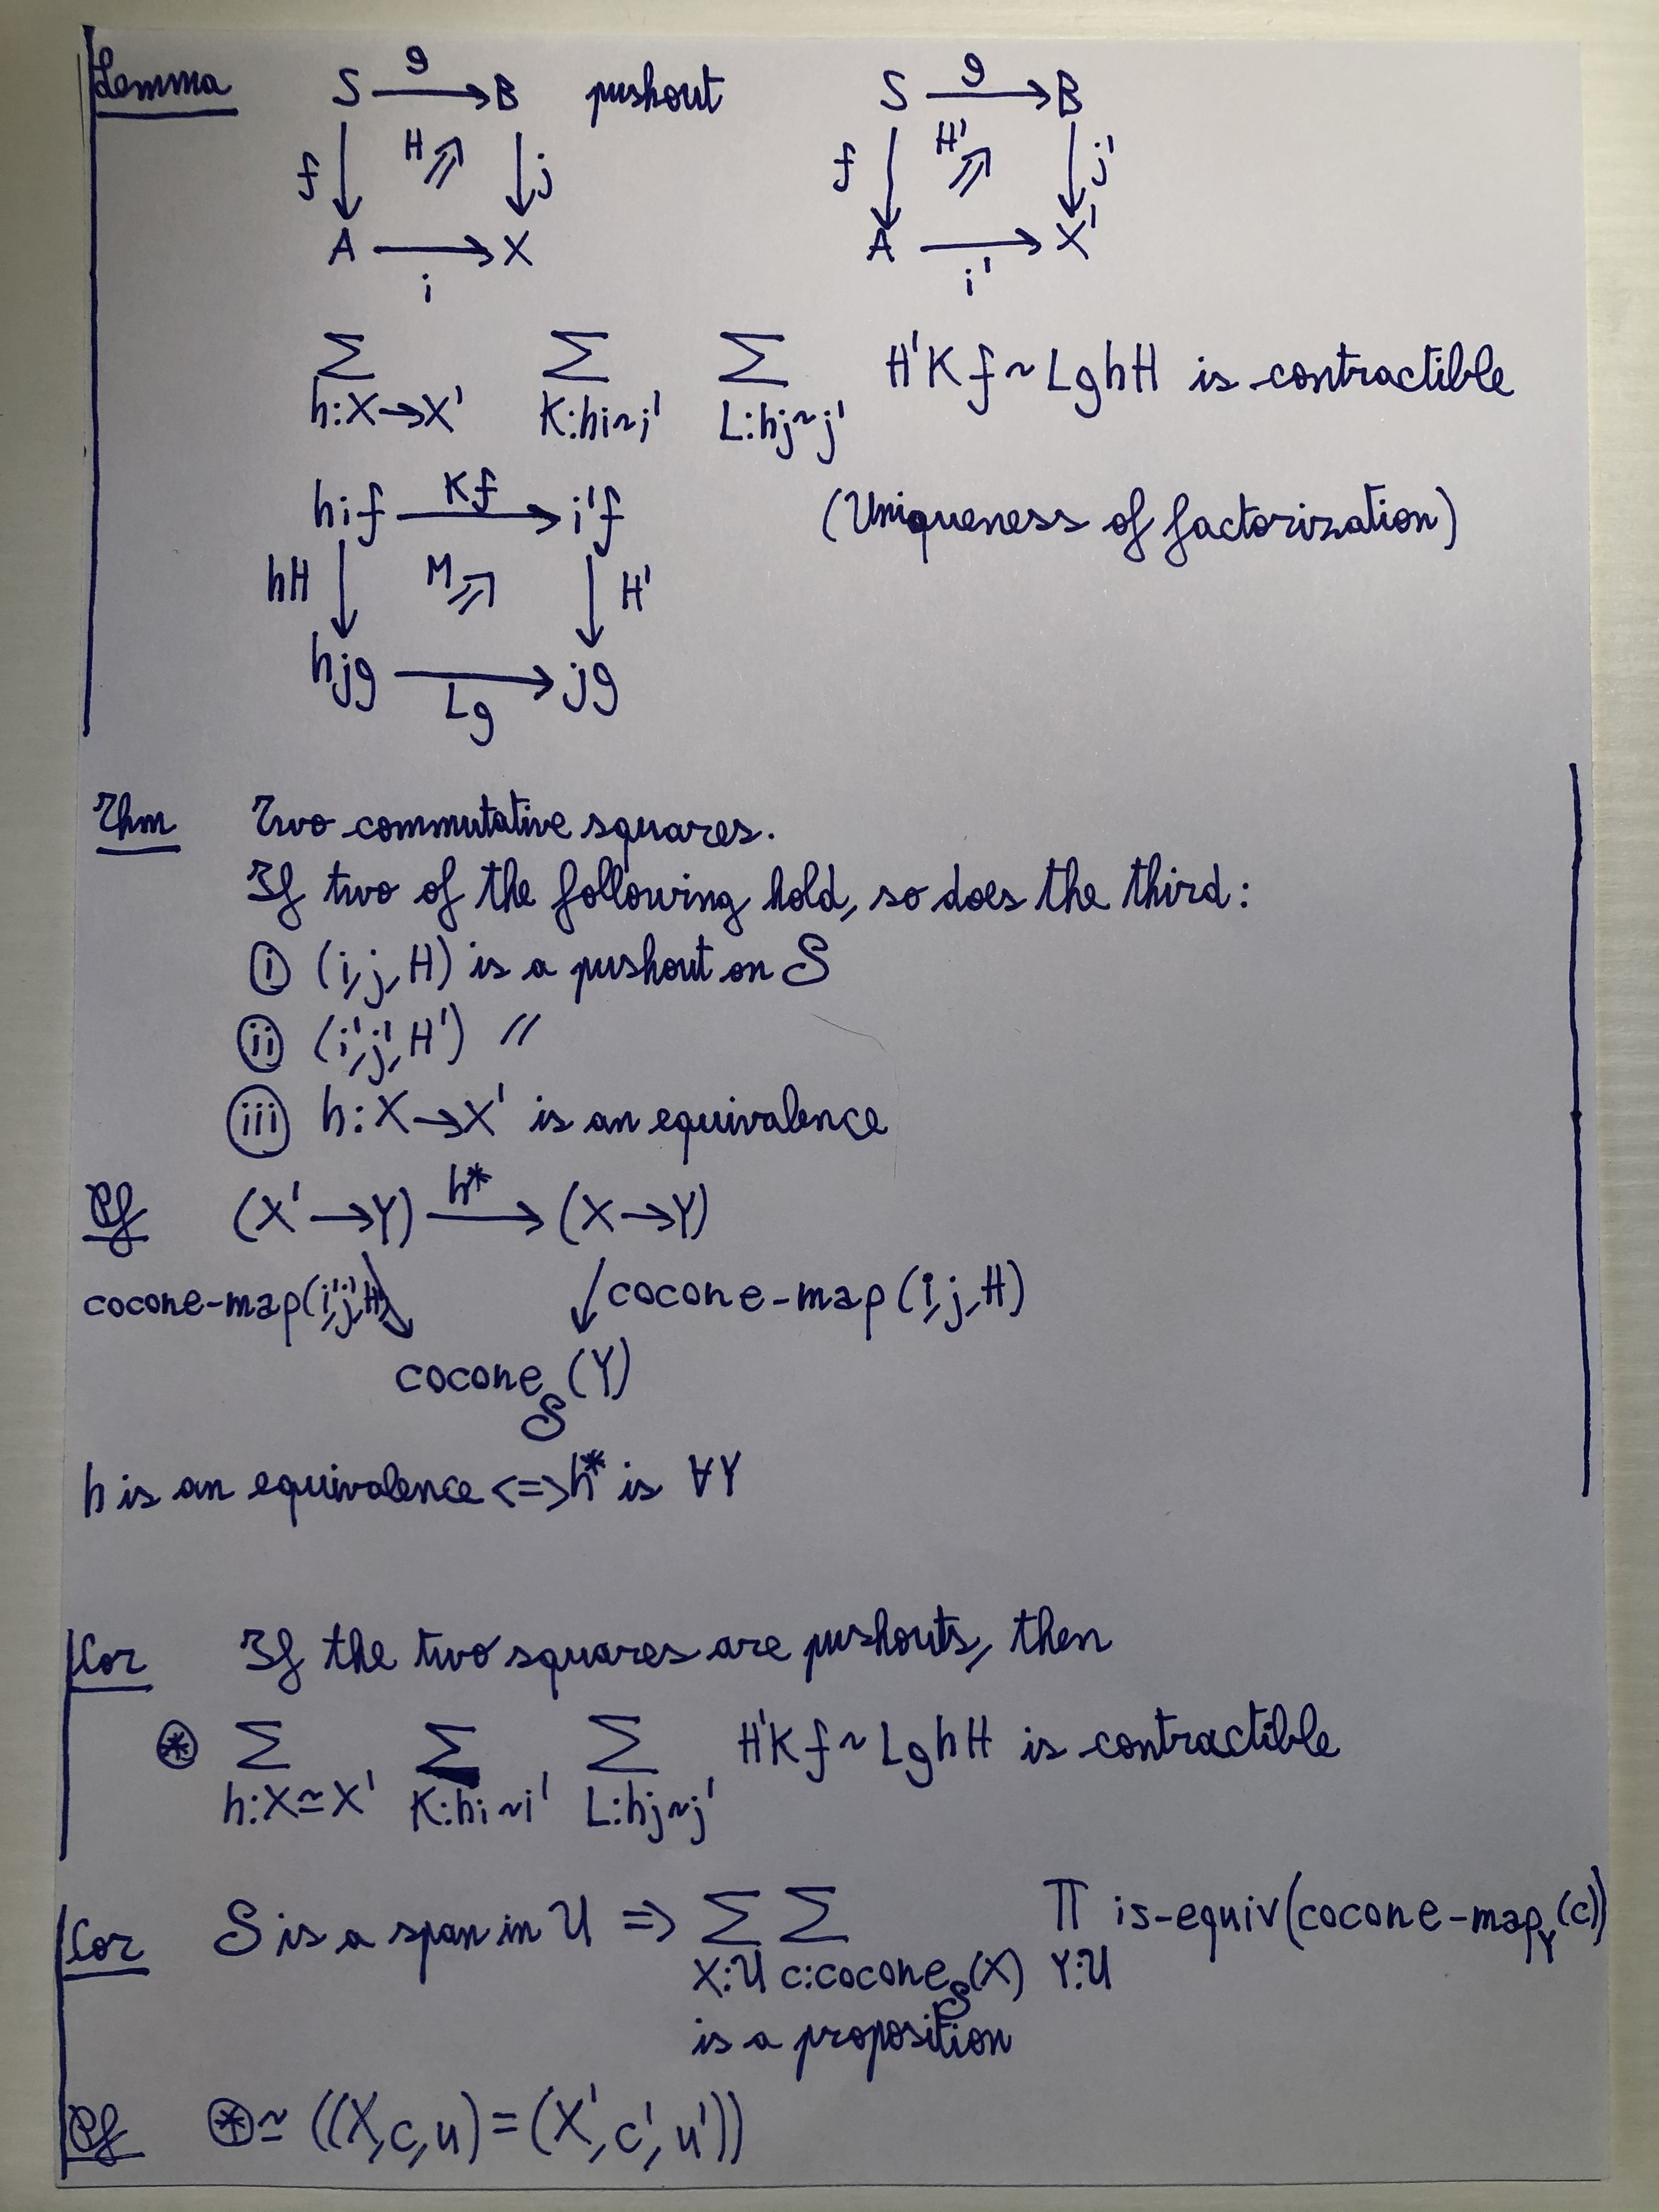 Lemma S g B pushout S g B
f H j f H' j'
A i X A i' X'
Σ Σ Σ H'Kf ~ LghH is contractible
h:X→X' K:hi~i' L:hj~j'
hif Kf i'f (Uniqueness of factorization)
hH M H'
hjg Lg jg
Thm Two commutative squares.
If two of the following hold, so does the third:
ⓘ (i,j,H) is a pushout on 𝒮
(ii) (i',j',H') //
(iii) h:X→X' is an equivalence
Pf (X'→Y) h* (X→Y)
cocone-map(i',j',H') cocone-map(i,j,H)
cocone𝒮(Y)
h is an equivalence <=> h* is ∀Y
Cor If the two squares are pushouts, then
⊛ Σ Σ Σ H'Kf ~ LghH is contractible
h:X≃X' K:hi~i' L:hj~j'
Cor 𝒮 is a span in 𝒰 => Σ Σ Π is-equiv(cocone-map_Y(c))
X:𝒰 c:cocone𝒮(X) Y:𝒰
is a proposition
Pf ⊛ ≃ ((X,c,u)=(X',c',u'))